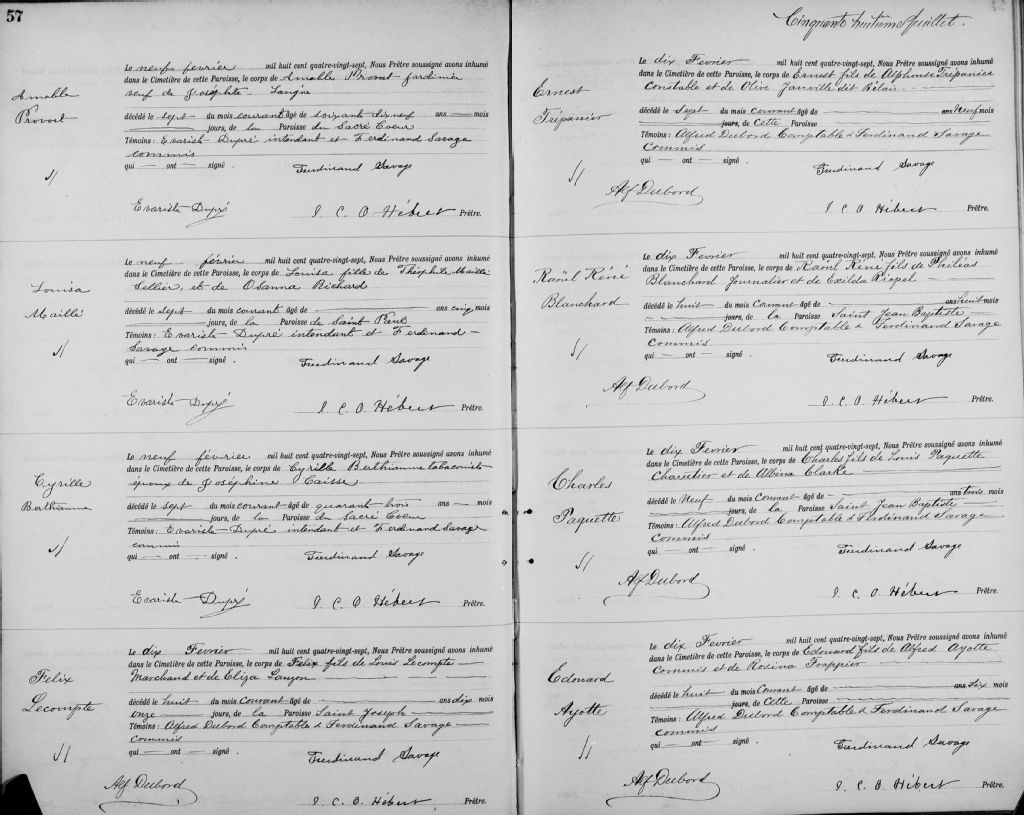 57
Amable
Provost
Le neuf février mil huit cent quatre-vingt-sept, Nous Prêtre soussigné avons inhumé
dans le Cimetière de cette Paroisse, le corps de Amable Provost Jardinier
veuf de Josephte Langin
décédé le sept du mois courant âgé de soixante dix neuf ans — mois
jours, de la Paroisse du Sacré Coeur
Témoins : Evariste Dupré intendant et Ferdinand Savage
commis
qui — ont — signé . Ferdinand Savage
Evariste Dupré J. C. O. Hébert Prêtre.
Louisa
Maillé
Le neuf février mil huit cent quatre-vingt-sept, Nous Prêtre soussigné avons inhumé
dans le Cimetière de cette Paroisse, le corps de Louisa fille de Théophile Maillé
Sellier, et de Osanna Richard
décédé le sept du mois courant âgé de — ans cinq mois
jours, de la Paroisse de Saint Paul
Témoins : Evariste Dupré intendant et Ferdinand
Savage commis
qui — ont — signé . Ferdinand Savage
Evariste Dupré J. C. O. Hébert Prêtre.
Cyrille
Berthiaume
Le neuf février mil huit cent quatre-vingt-sept, Nous Prêtre soussigné avons inhumé
dans le Cimetière de cette Paroisse, le corps de Cyrille Berthiaume tabaconiste
époux de Joséphine Caisse
décédé le sept du mois courant âgé de quarante trois ans — mois
jours, de la Paroisse du Sacré Coeur
Témoins : Evariste Dupré intendant et Ferdinand Savage
commis
qui — ont — signé . Ferdinand Savage
Evariste Dupré J. C. O. Hébert Prêtre.
Felix
Lecompte
Le dix Fevrier mil huit cent quatre-vingt-sept, Nous Prêtre soussigné avons inhumé
dans le Cimetière de cette Paroisse, le corps de Felix fils de Louis Lecompte
Marchand et de Eliza Lauzon
décédé le huit du mois Courant âgé de — ans dix mois
onze jours, de la Paroisse Saint Joseph
Témoins : Alfred Dubord Comptable & Ferdinand Savage
Commis
qui — ont — signé . Ferdinand Savage
Alf Dubord J. C. O. Hébert Prêtre.
Cinquante huitième feuillet.
Ernest
Trepanier
Le dix Fevrier mil huit cent quatre-vingt-sept, Nous Prêtre soussigné avons inhumé
dans le Cimetière de cette Paroisse, le corps de Ernest fils de Alphonse Trépanier
Constable et de Olive Janville dit Bélair
décédé le Sept du mois Courant âgé de — ans Neuf mois
jours, de Cette Paroisse
Témoins : Alfred Dubord Comptable & Ferdinand Savage
Commis
qui — ont — signé . Ferdinand Savage
Alf Dubord
J. C. O. Hébert Prêtre.
Raoül Réné
Blanchard
Le dix Fevrier mil huit cent quatre-vingt-sept, Nous Prêtre soussigné avons inhumé
dans le Cimetière de cette Paroisse, le corps de Raoül Réné fils de Philéas
Blanchard Journalier et de Exilda Riopel
décédé le huit du mois Courant âgé de — ans huit mois
jours, de la Paroisse Saint Jean Baptiste
Témoins : Alfred Dubord Comptable & Ferdinand Savage
Commis
qui — ont — signé . Ferdinand Savage
Alf Dubord
J. C. O. Hébert Prêtre.
Charles
Paquette
Le dix Fevrier mil huit cent quatre-vingt-sept, Nous Prêtre soussigné avons inhumé
dans le Cimetière de cette Paroisse, le corps de Charles fils de Louis Paquette
Charretier et de Albina Clarke
décédé le Neuf du mois Courant âgé de — ans trois mois
jours, de la Paroisse Saint Jean Baptiste
Témoins : Alfred Dubord Comptable & Ferdinand Savage
Commis
qui — ont — signé . Ferdinand Savage
Alf Dubord
J. C. O. Hébert Prêtre.
Edouard
Ayotte
Le dix Fevrier mil huit cent quatre-vingt-sept, Nous Prêtre soussigné avons inhumé
dans le Cimetière de cette Paroisse, le corps de Edouard fils de Alfred Ayotte
Commis et de Rosina
décédé le huit du mois Courant âgé de — ans Six mois
jours, de Cette Paroisse
Témoins : Alfred Dubord Comptable & Ferdinand Savage
Commis
qui — ont — signé . Ferdinand Savage
Alf Dubord
J. C. O. Hébert Prêtre.